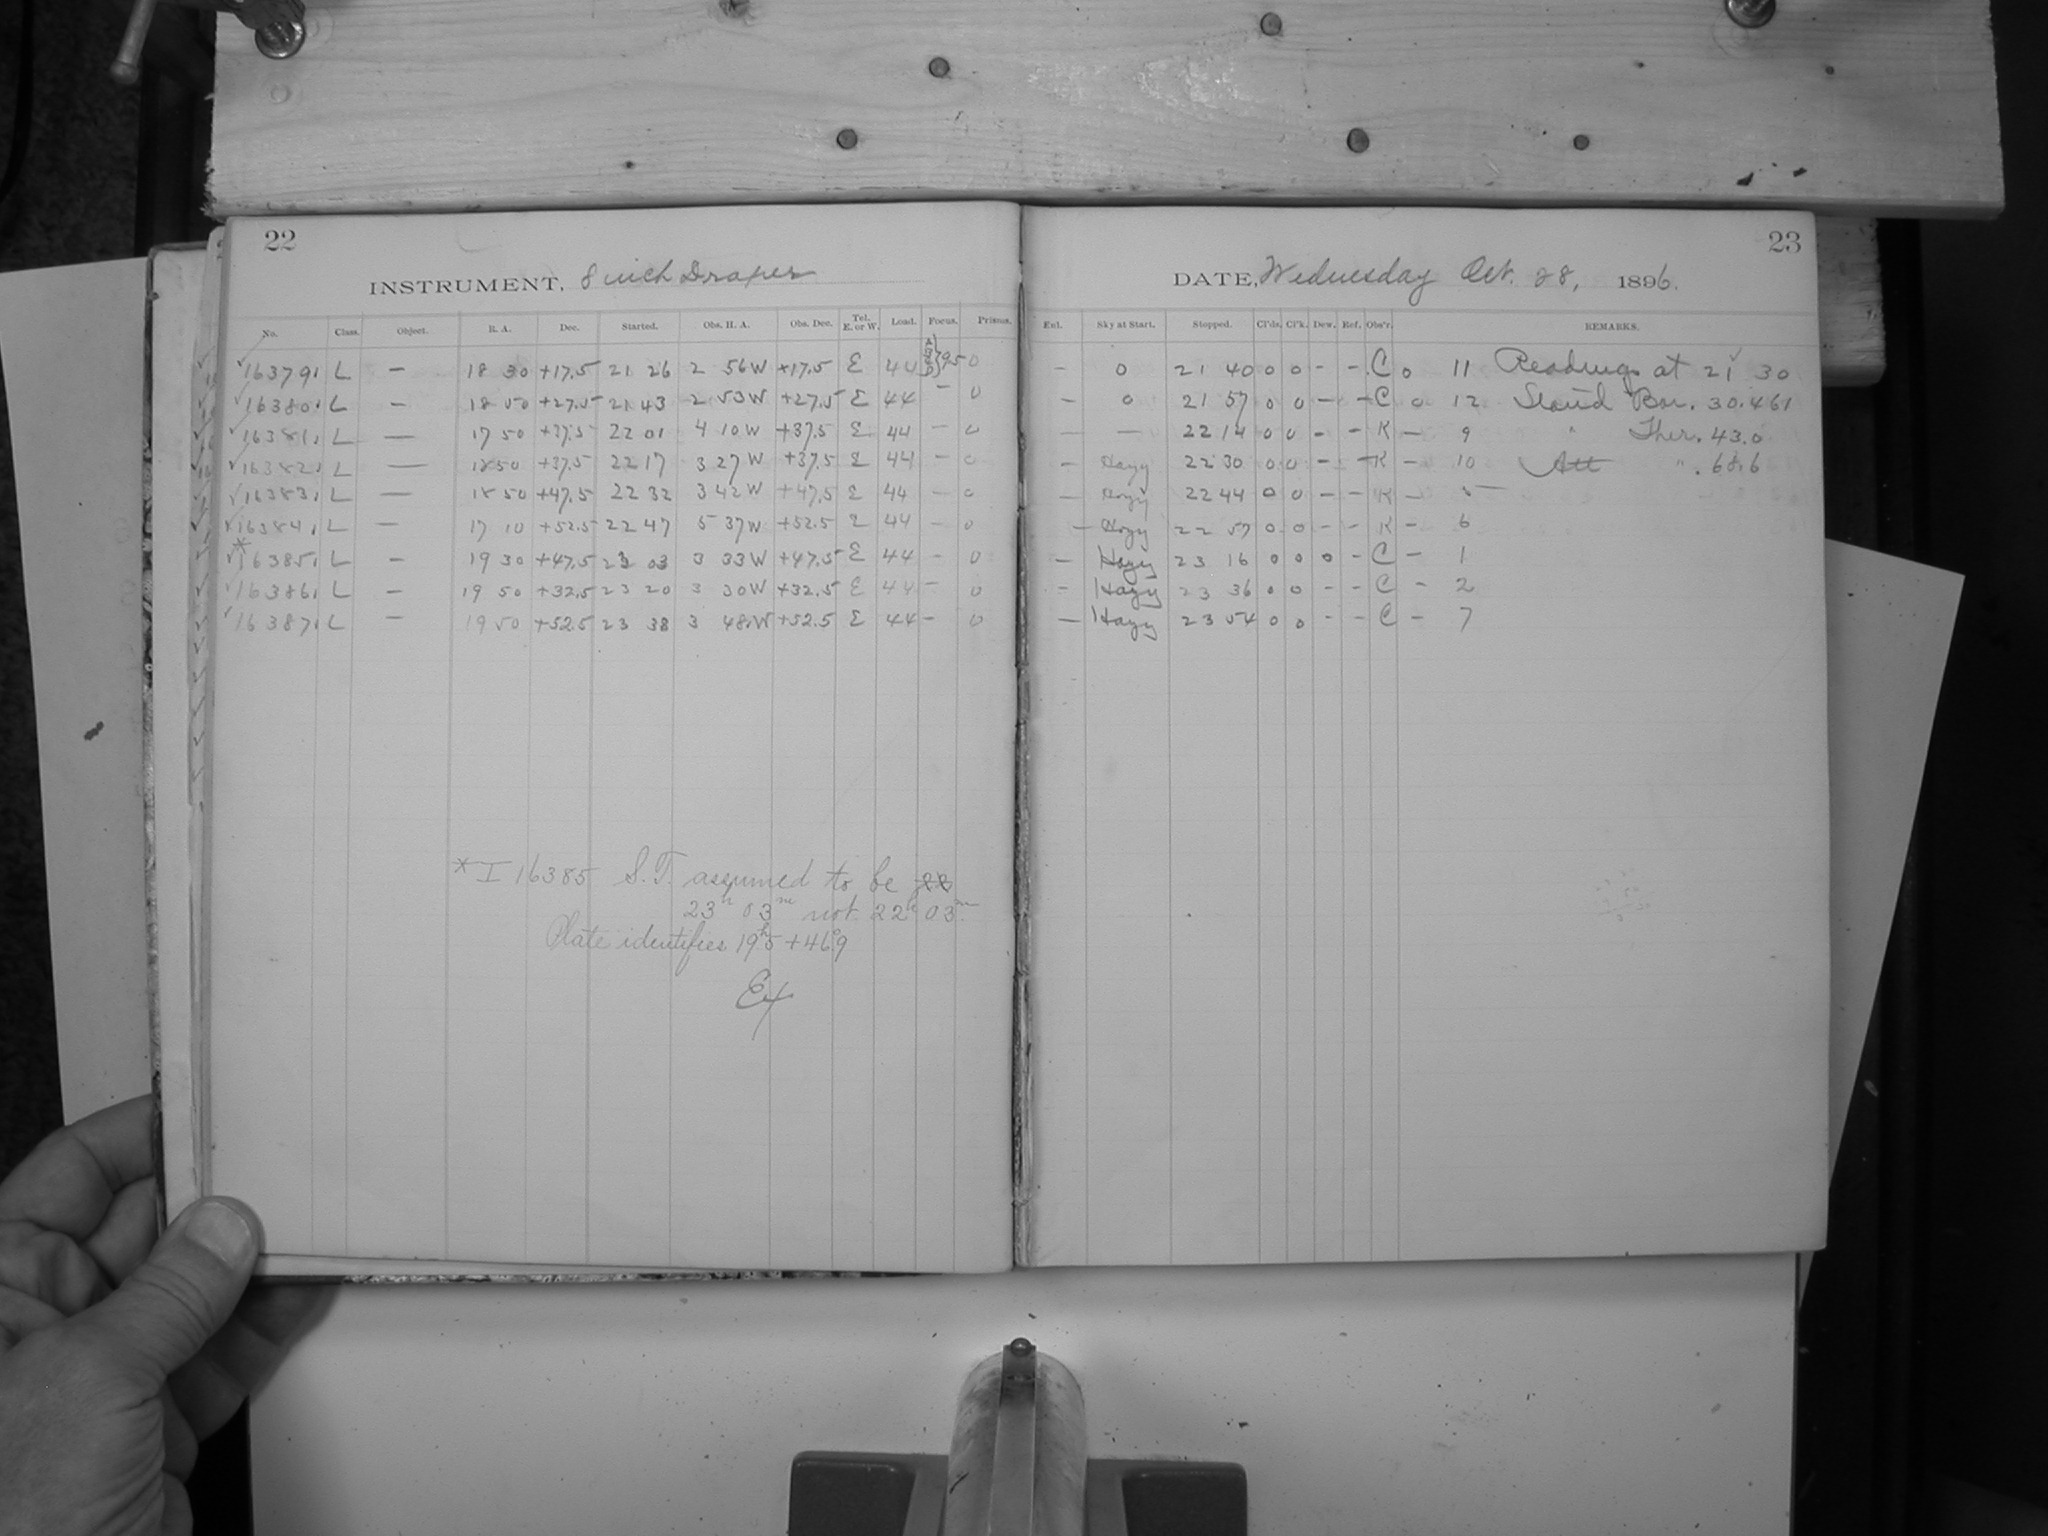 22
INSTRUMENT, 8 inch Draper
No. Class. Object. R. A. Dec. Started. Obs. H. A. Obs. Dec. Tel. E. or W. Load. Focus. Prisms.
16379. L — 18 30 +17.5 21 26 2 56W +17.5 E 44 95 0
16380. L — 18 50 +27.5 21 43 2 53W +27.5 E 44 — 0
16381. L — 17 50 +37.5 22 01 4 10W +37.5 E 44 — 0
16382. L — 18 50 +37.5 22 17 3 27W +37.5 E 44 — 0
16383. L — 18 50 +47.5 22 32 3 42W +47.5 E 44 — 0
16384. L — 17 10 +52.5 22 47 5 37W +52.5 E 44 — 0
*16385. L — 19 30 +47.5 23 03 3 33W +47.5 E 44 — 0
16386. L — 19 50 +32.5 23 20 3 30W +32.5 E 44 — 0
16387. L — 19 50 +52.5 23 38 3 48W +52.5 E 44 — 0
*I 16385 S.T. assumed to be
23h 03m not 22h 03m.
Plate identifies 19h5 +46°9
23
DATE, Wednesday Oct. 28, 1896.
Enl. Sky at Start. Stopped. Cl'ds. Cl'k. Dew. Ref. Obs'r. REMARKS.
— 0 21 40 0 0 — — C 0 11 Readings at 21 30
— 0 21 57 0 0 — — C 0 12 Stand Bar. 30.461
— — 22 14 0 0 — — K — 9 " Ther. 43.0
— Hazy 22 30 0 0 — — K — 10 Att " . 68.6
— Hazy 22 44 0 0 — — K —
— Hazy 22 57 0 0 — — K — 6
— Hazy 23 16 0 0 0 — C — 1
— Hazy 23 36 0 0 — — C — 2
— Hazy 23 54 0 0 — — C — 7